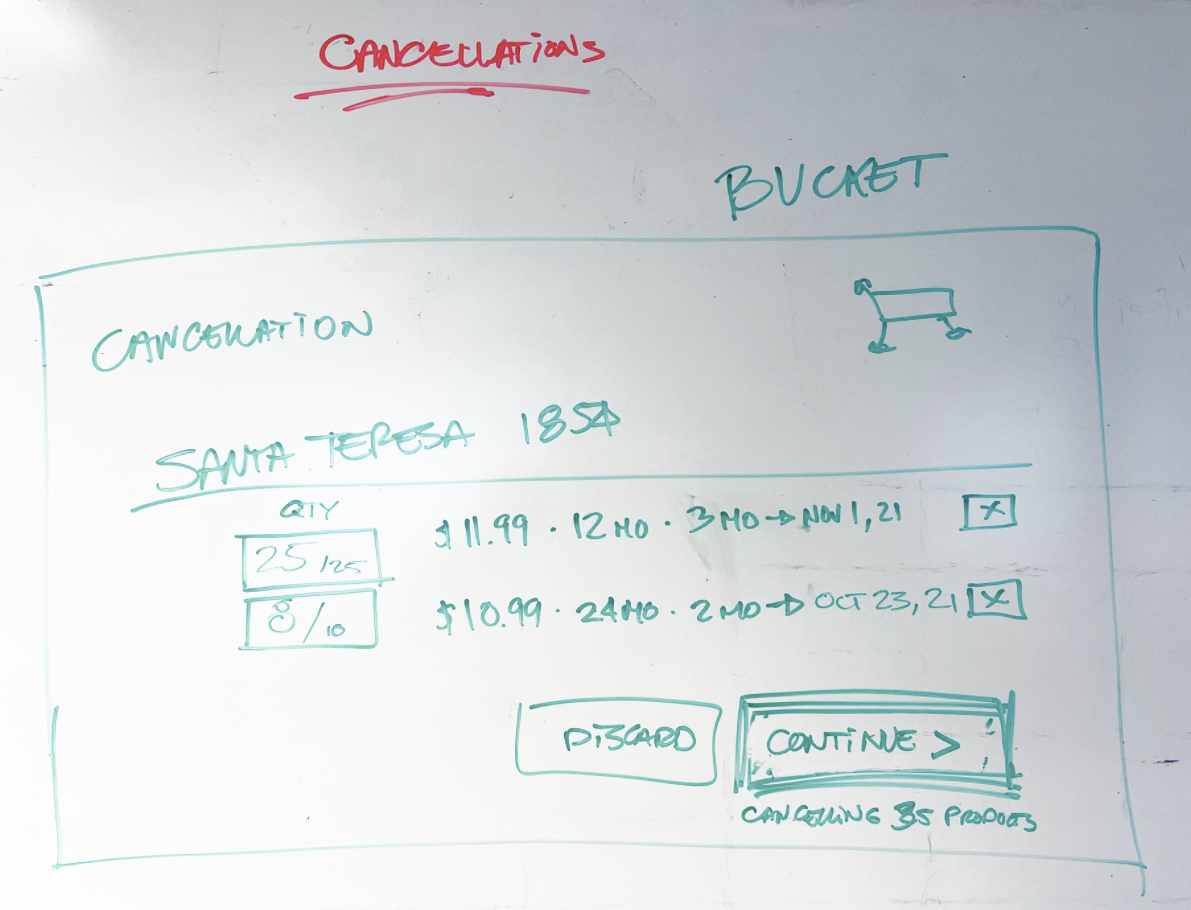 CANCELLATIONS
BUCKET
CANCELLATION
SANTA TERESA 1854
QTY
25/125 $11.99 · 12 MO · 3 MO → NOV 1, 21 X
8/10 $10.99 · 24 MO · 2 MO → OCT 23, 21 X
DISCARD CONTINUE >
CANCELLING 35 PRODUCTS